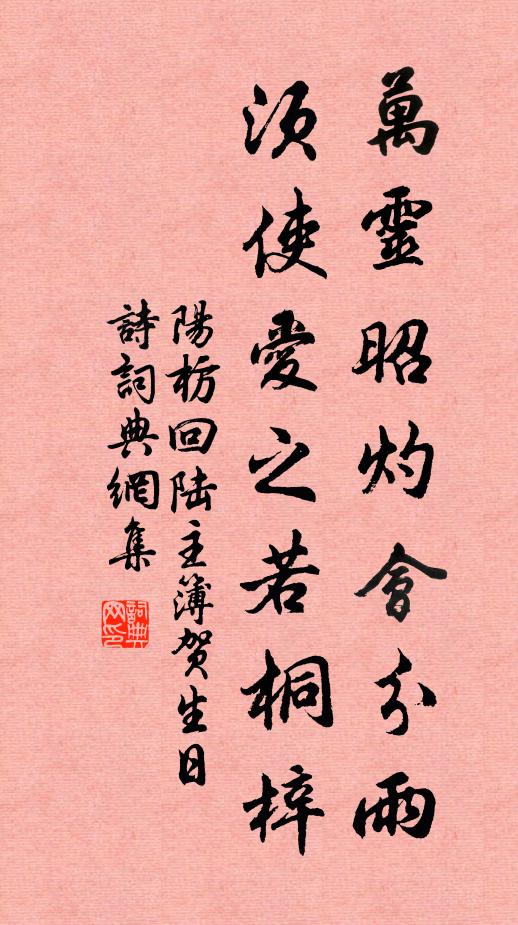 萬靈昭灼會分雨
須使愛之若桐梓
陽枋回陸主簿賀生日
詩詞典網集
詞典網印